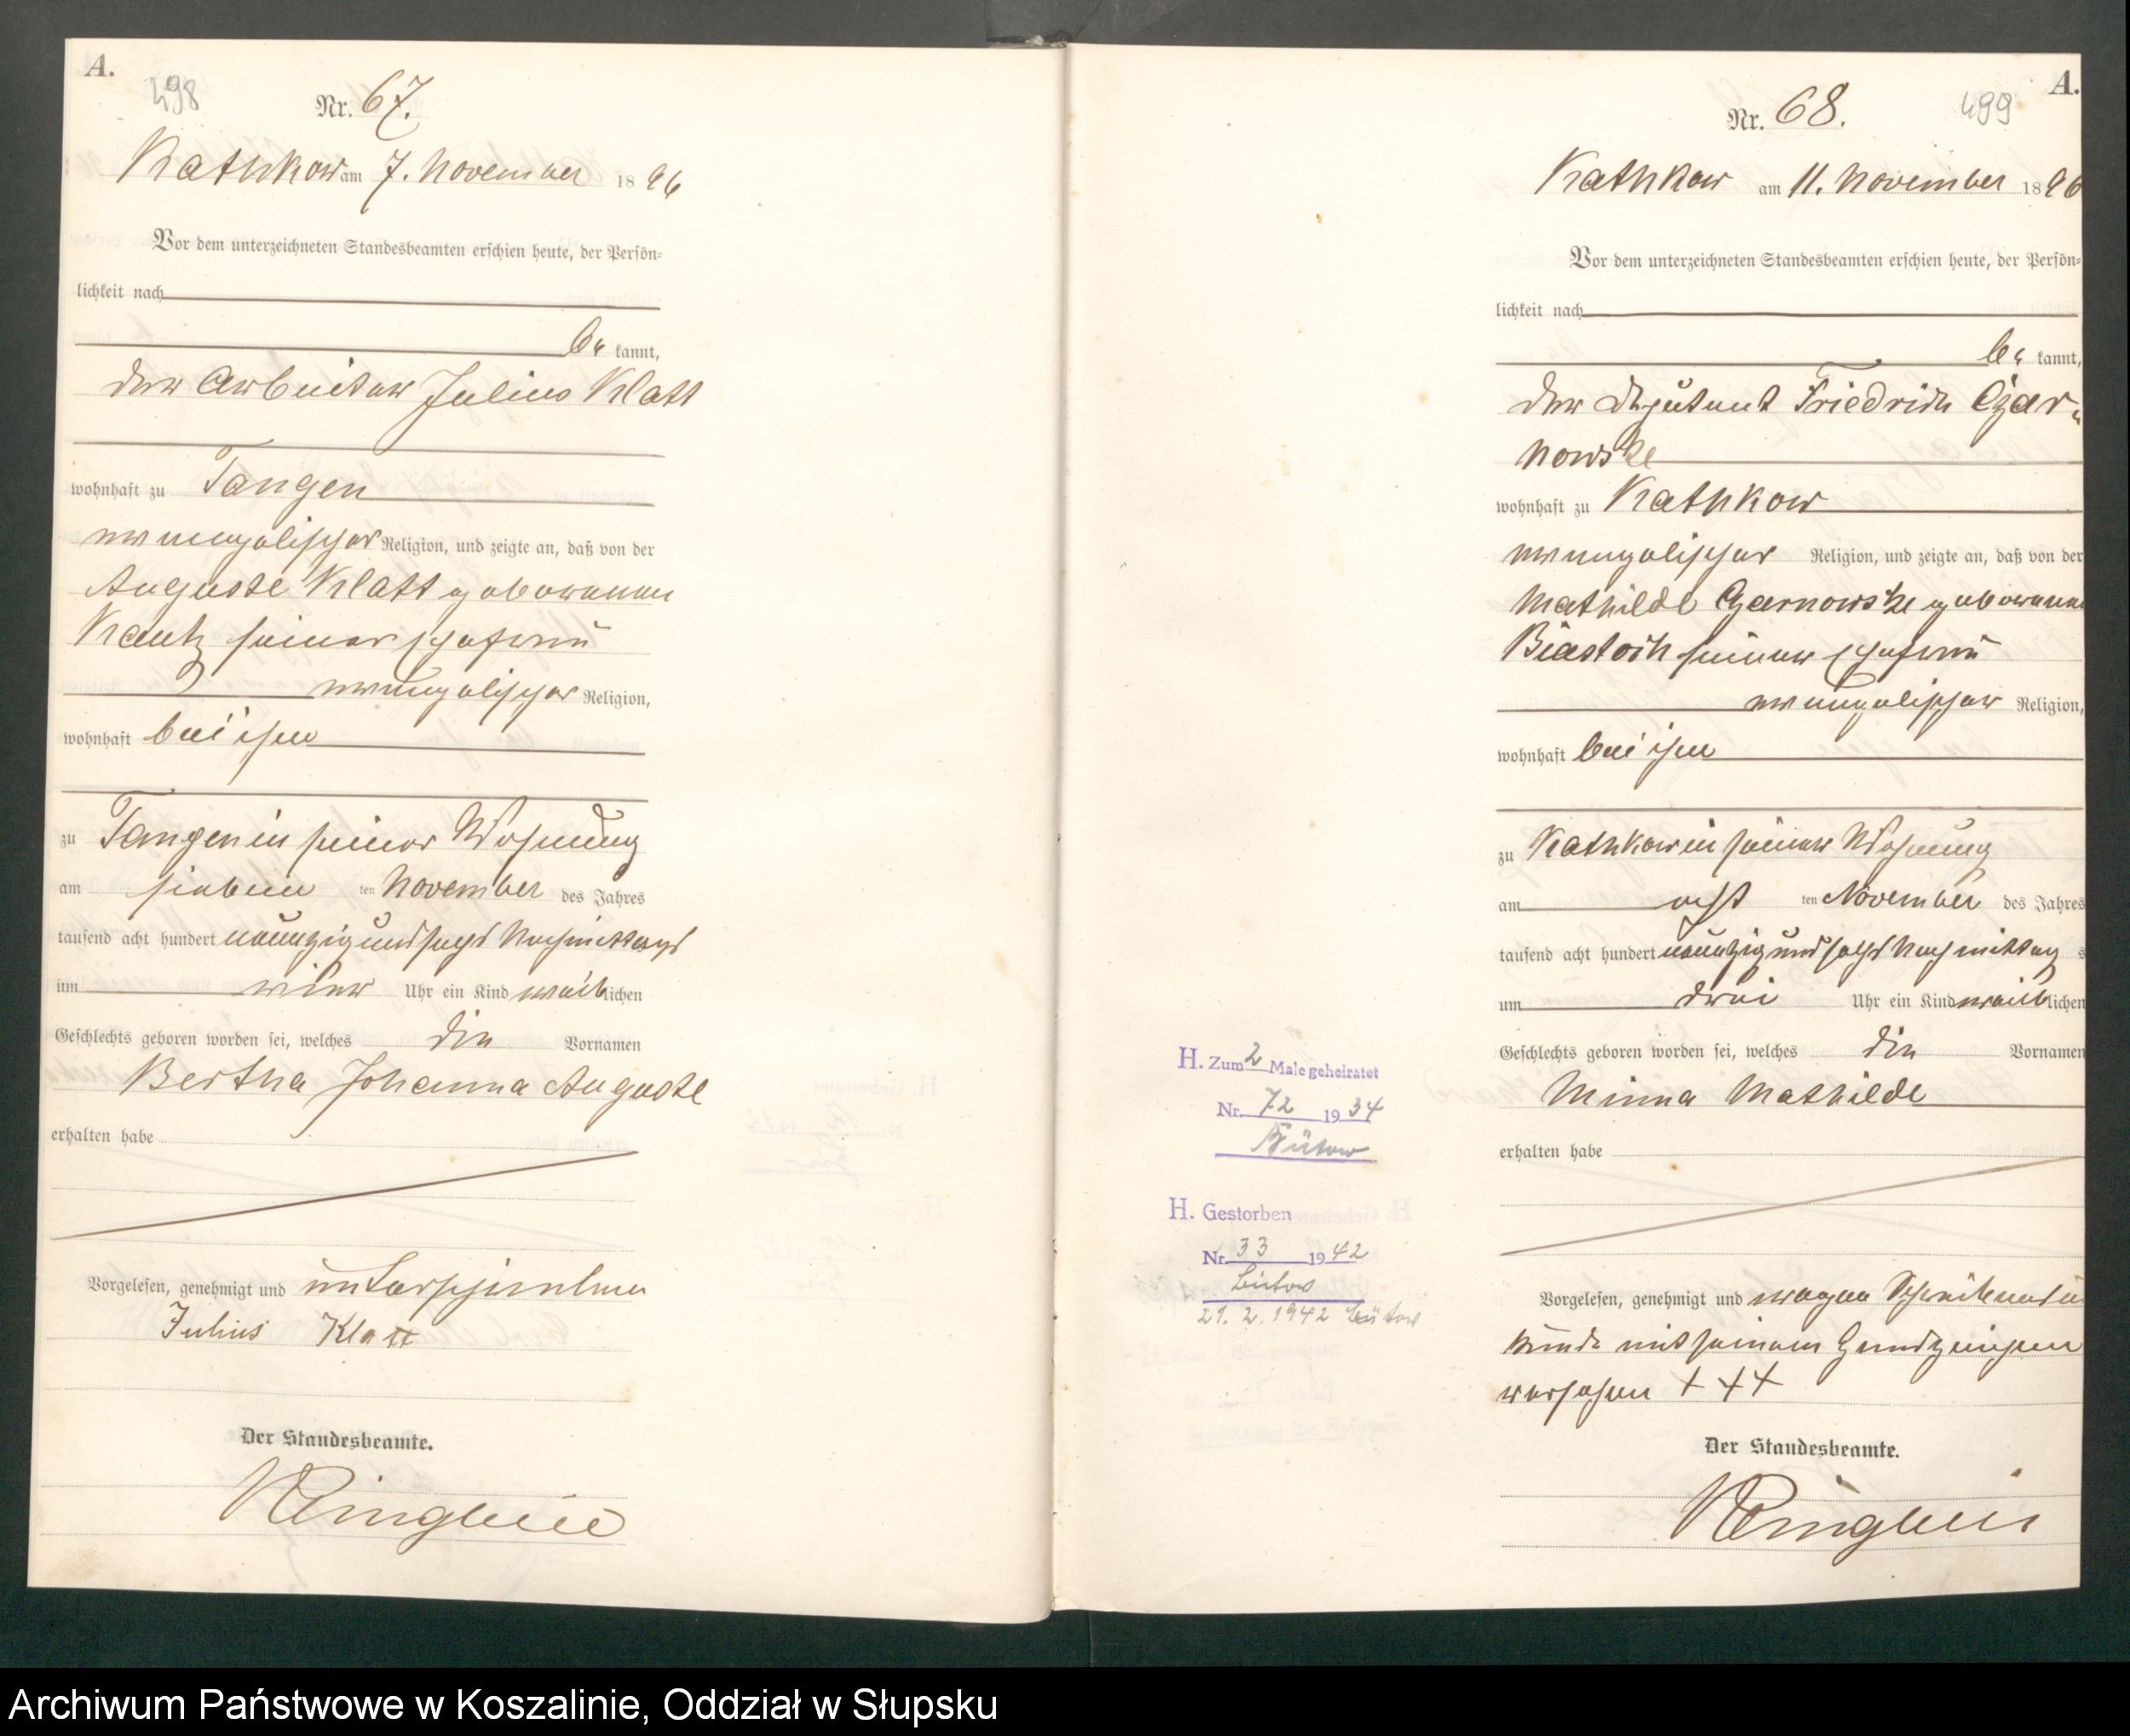 A.
498
Nr. 67.
Kathkow am 7. November 1896
Vor dem unterzeichneten Standesbeamten erschien heute, der Persön-
lichkeit nach
be kannt,
der Arbeiter Julius Klatt
wohnhaft zu Tangen
evangelischer Religion, und zeigte an, daß von der
Auguste Klatt geborenen
Kautz seiner Ehefrau
evangelischer Religion,
wohnhaft bei ihm
zu Tangen in seiner Wohnung
am sieben ten November des Jahres
tausend acht hundert neunzig und sechs Nachmittags
um vier Uhr ein Kind weiblichen
Geschlechts geboren worden sei, welches die Vornamen
Bertha Johanna Auguste
erhalten habe
Vorgelesen, genehmigt und unterschrieben
Julius Klatt
Der Standesbeamte.
H. Zum 2 Male geheiratet
Nr. 72 1934
Bütow
H. Gestorben
Nr. 33 1942
Bütow
21. 2. 1942 Bütow
A.
499
Nr. 68.
Kathkow am 11. November 1896
Vor dem unterzeichneten Standesbeamten erschien heute, der Persön-
lichkeit nach
be kannt,
der Deputant Friedrich Czar-
nowske
wohnhaft zu Kathkow
evangelischer Religion, und zeigte an, daß von der
Mathilde Czarnowske geborenen
Biastoch seiner Ehefrau
evangelischer Religion,
wohnhaft bei ihm
zu Kathkow in seiner Wohnung
am acht ten November des Jahres
tausend acht hundert neunzig und sechs Nachmittag s
um drei Uhr ein Kind weiblichen
Geschlechts geboren worden sei, welches die Vornamen
Minna Mathilde
erhalten habe
Vorgelesen, genehmigt und wegen Schreibensun
kunde mit seinem Handzeichen
versehen + + +
Der Standesbeamte.
Archiwum Państwowe w Koszalinie, Oddział w Słupsku